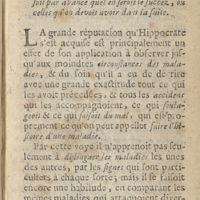 soit par avance quel en seroit le succez, ou
celles qu'on devoit avoir dans la suite.
LA grande réputation qu'Hippocrate
s'est acquise est principalement un
effet de son application à observer jus-
qu'aux moindres circonstances des mala-
dies, & du soin qu'il a eu de décrire
avec une grande exactitude tout ce qui
les avoit précédées, & tous les accidens
qui les accompagnoient, ce qui soula-
geoit & ce qui faisoit du mal, qui est pro-
prement ce qu'on peut appeller faire l'His-
toire d'une maladie.
Par cette voye il n'apprenoit pas seu-
lement à distinguer les maladies les unes
des autres, par les signes qui sont parti-
culiers à chaque sorte; mais il se faisoit
encore une habitude, en comparant les
mêmes maladies qui attaquoient diver-